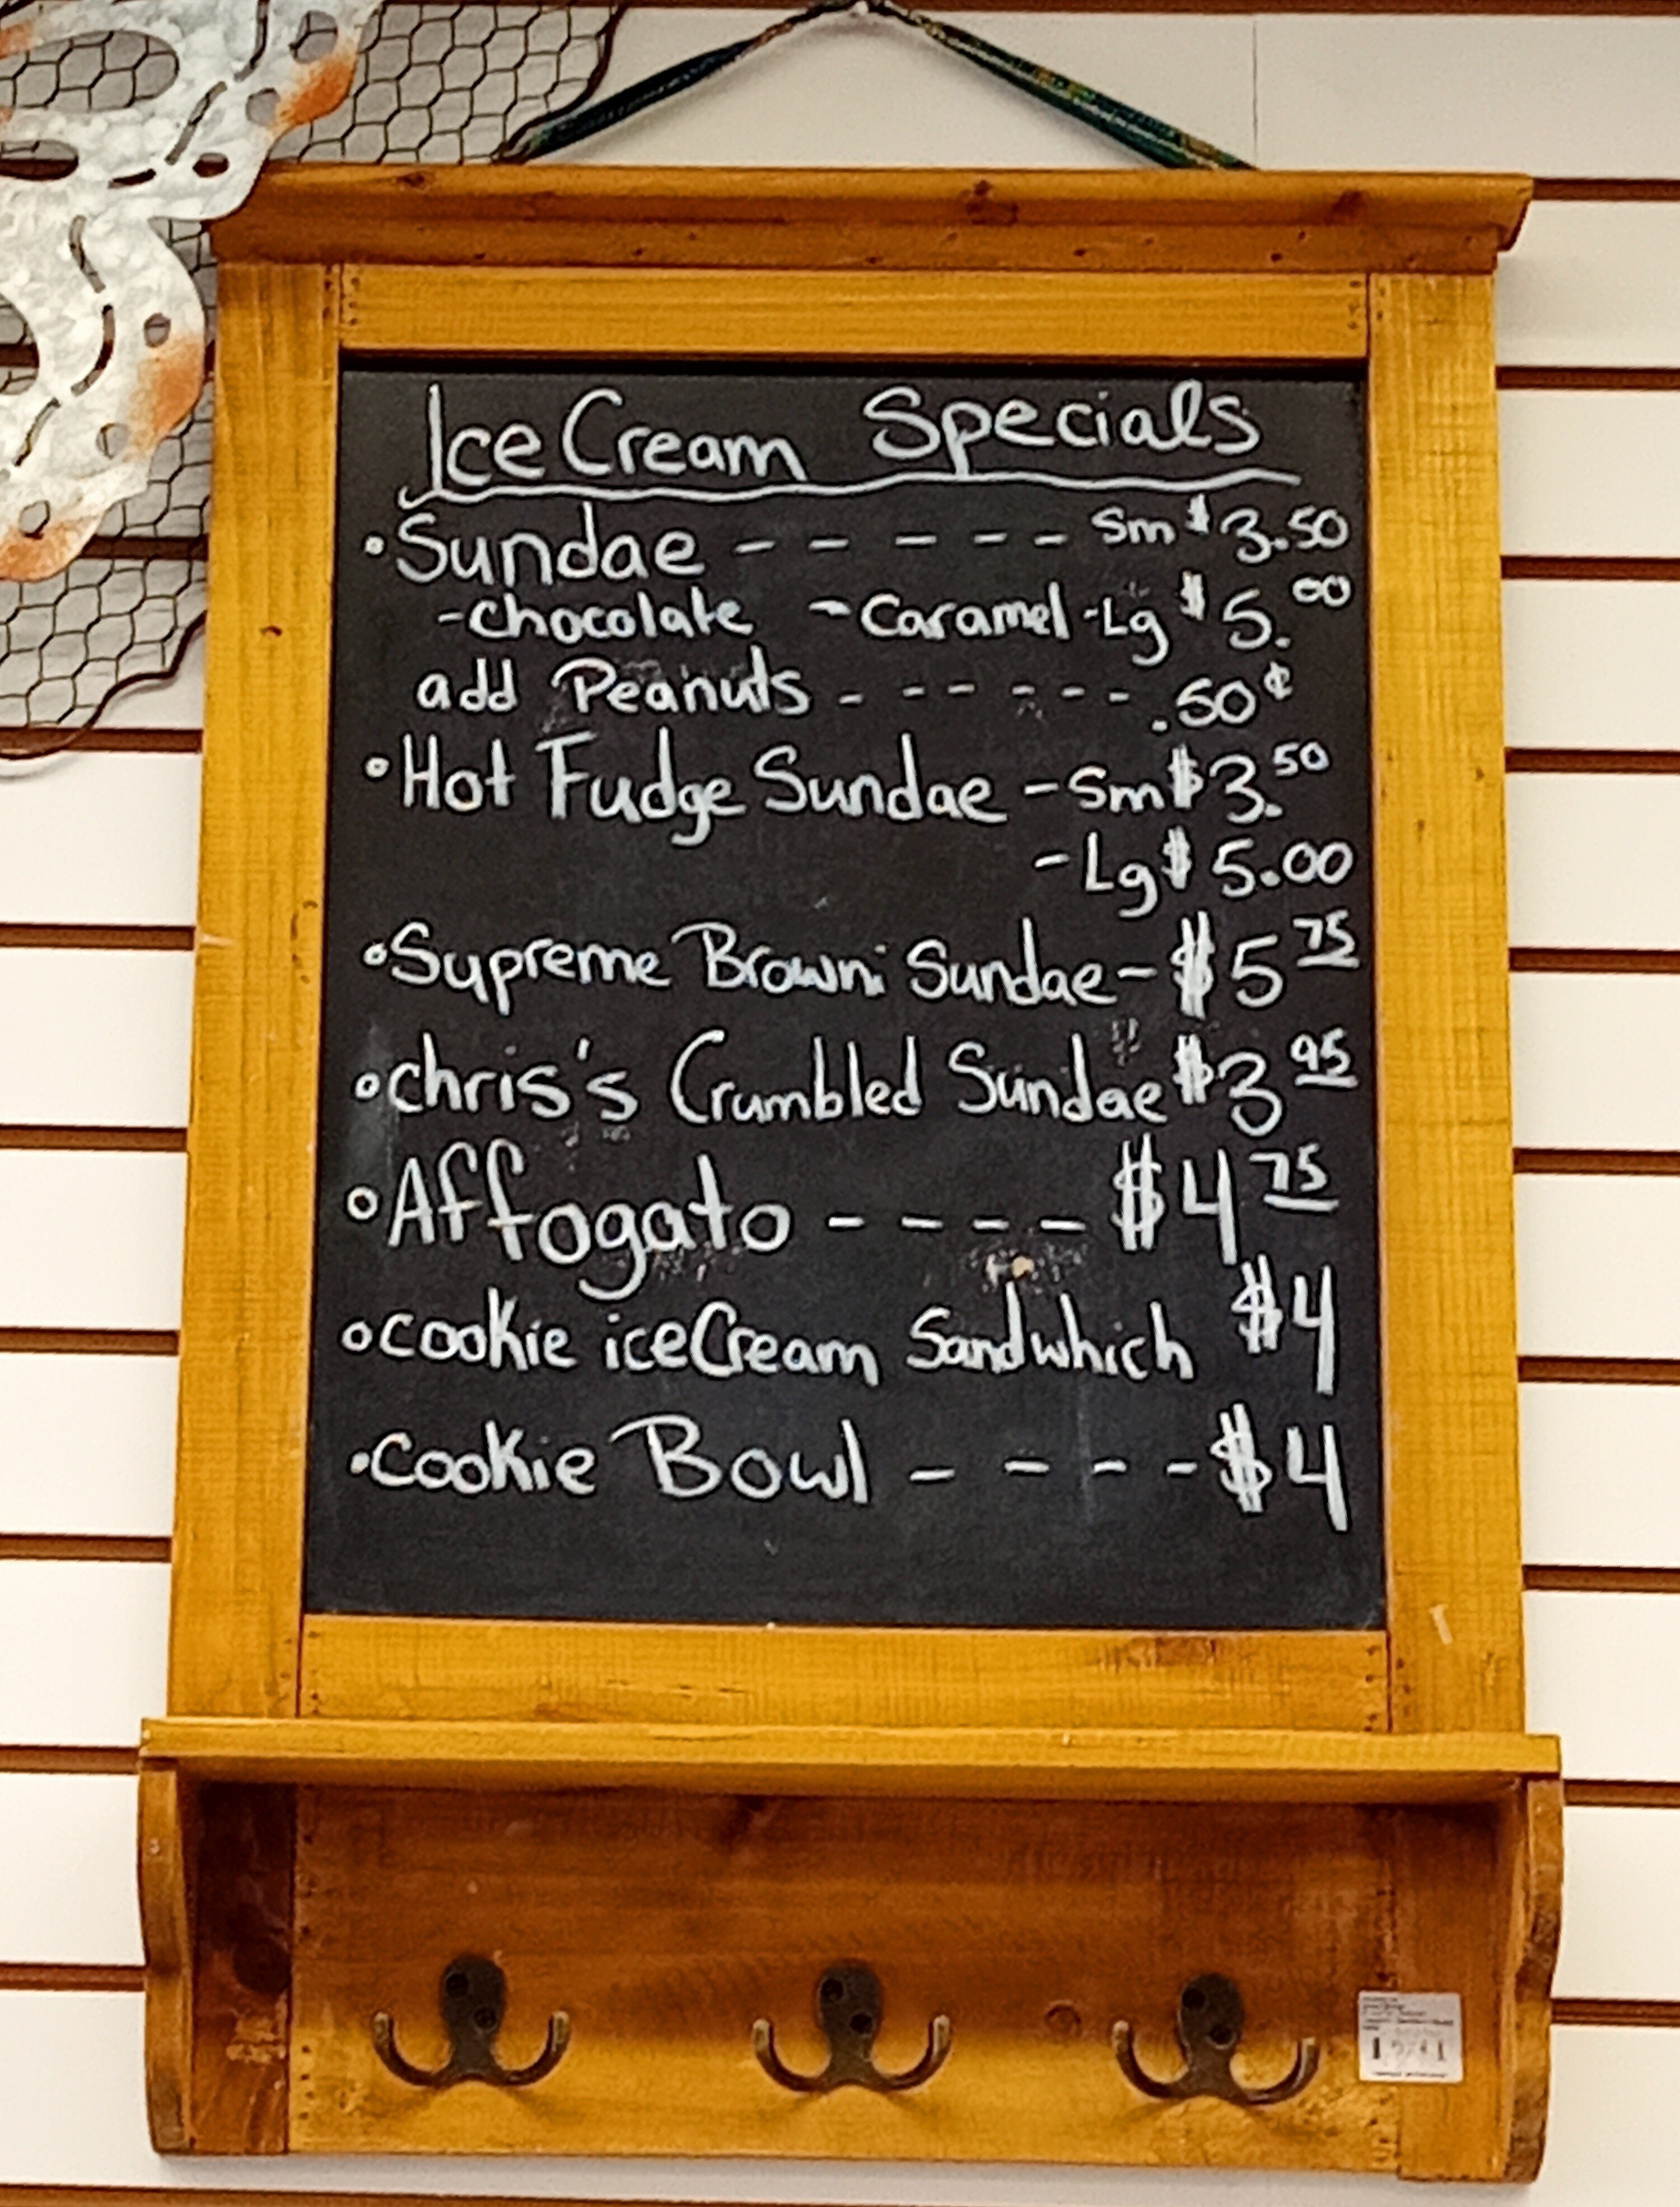 Ice Cream Specials
• Sundae - - - - - Sm $3.50
- Chocolate - Caramel - Lg $5.00
add Peanuts - - - - - - .50¢
• Hot Fudge Sundae - Sm $3.50
- Lg $5.00
• Supreme Brown Sundae - $5 75
• chris's Crumbled Sundae $3 95
• Affogato - - - - $4 75
• cookie iceCream Sandwhich $4
• cookie Bowl - - - - $4